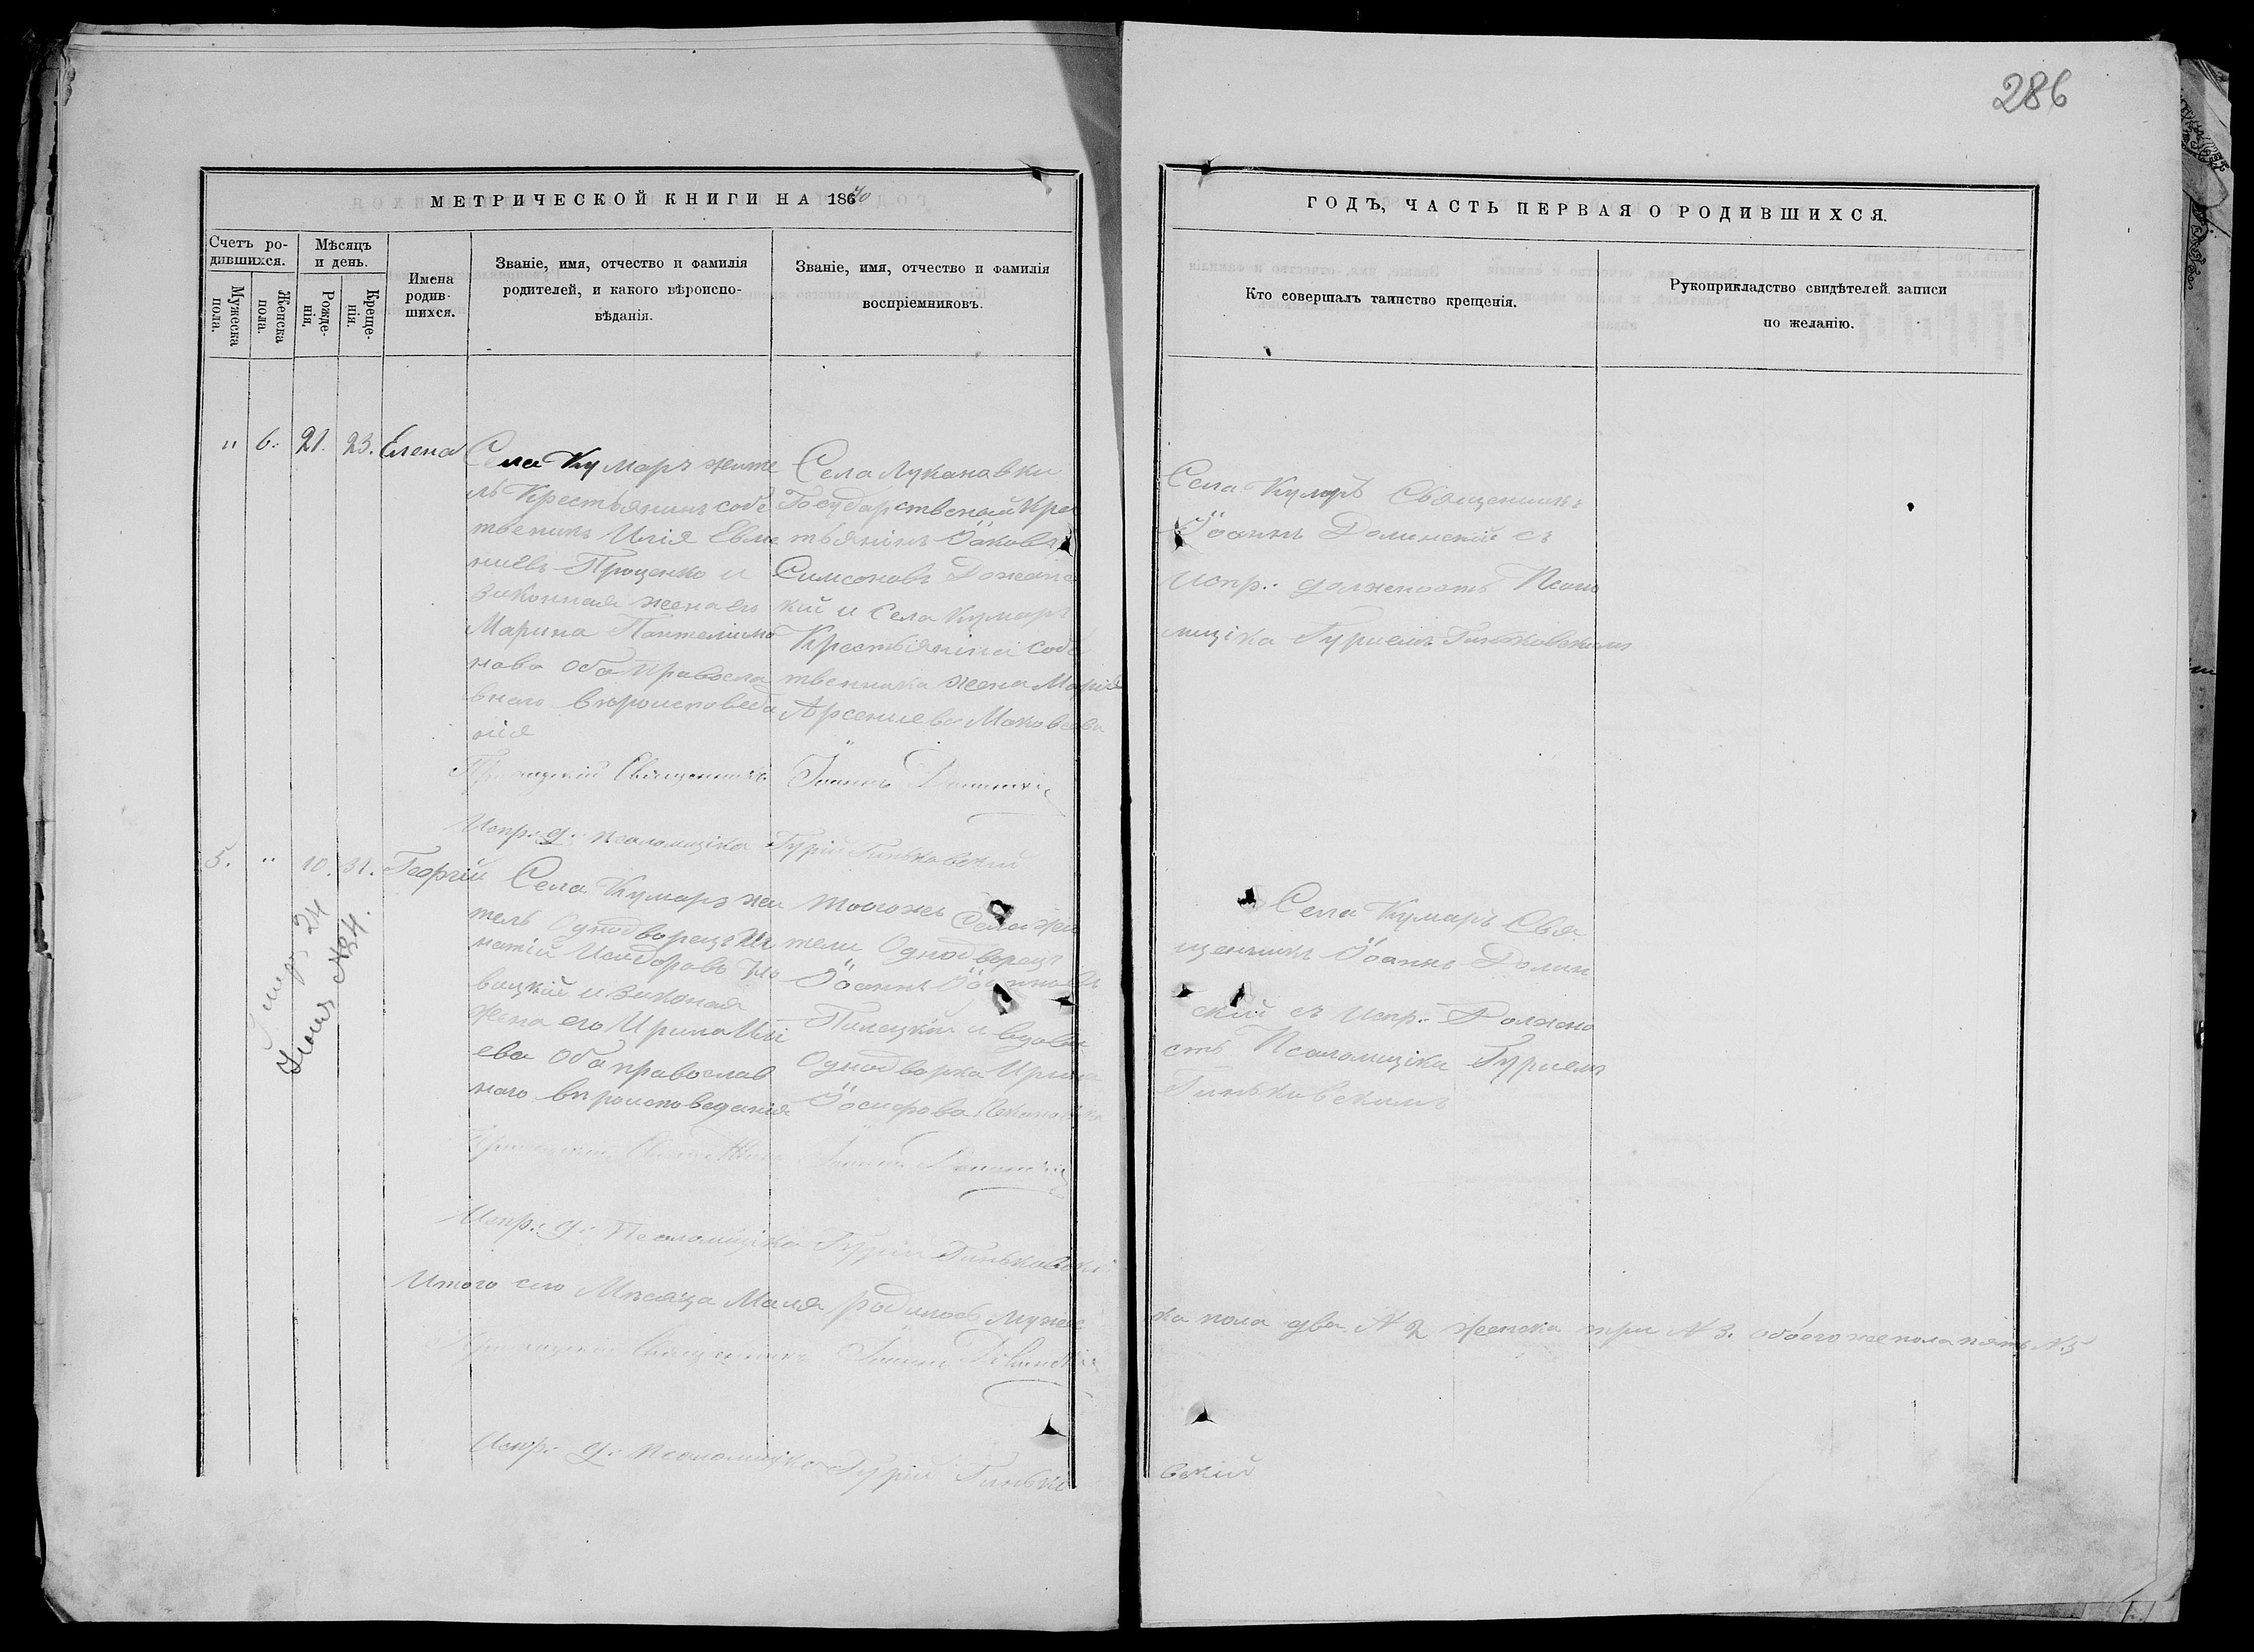 286
МЕТРИЧЕСКОЙ КНИГИ НА 1870
ГОДЪ, ЧАСТЬ ПЕРВАЯ О РОДИВШИХСЯ.
Счетъ ро-
дившихся.
Мужеска
пола.
Женска
пола.
Мѣсяцъ
и день.
Рожде-
нія.
Креще-
нія.
Имена
родив-
шихся.
Званіе, имя, отчество и фамилія
родителей, и какого вѣроиспо-
вѣданія.
Званіе, имя, отчество и фамилія
воспріемниковъ.
Кто совершалъ таинство крещенія.
Рукоприкладство свидѣтелей записи
по желанію.
" 6. 21. 23. Елена
Села Кумаръ жите
ль Крестьянинъ собс
твеникъ Илія Евме
ніевъ Проценко и
Законная жена его
Марина Пантелимо
нова оба Правосла
внаго вѣроисповеда
нія
Села Лукановки
Государственый Крес
тьянінъ Іаковъ
Симсоновъ
кій и Села Кумаръ
Крестьяніна собс
твенника жена Марія
Арсениева
Села Кумаръ Священникъ
Іоаннъ Долинскій съ
Испр. должность Псало
мщіка Гуриемъ Гиньковскимъ
Приходскій Священникъ Іоаннъ Долинскій
Испр. д. псаломщіка Гурій Гиньковскій
5. " 10. 31. Георгій
Села Кумаръ жи
тель Однодворецъ Иг
натій Исидоровъ
вацкій и Законая
жена его Ирина Илі
ева Оба православ
наго вѣроисповеданія
тогожъ Села жи
тели Однодворецъ
Іоаннъ Іоанновъ
Пилецкій и вдова
Однодворка Ирина
Іосифова
Села Кумаръ Свя
щенникъ Іоаннъ Долин
скій съ Испр. Должно
сть Псаломщіка Гуриемъ
Гиньковскимъ
Умеръ 24
Июня №34.
Приходскій Священникъ Іоаннъ Долинскій
Испр. д. Псаломщіка Гурій Гиньковскій
Итого сего Мѣсяца Маія родилось мужес
ка пола два №2 женска три №3. обоего же пола пять №5
Приходскій Священникъ Іоаннъ Долинскій
Испр. д. псаломщіка Гурій Гинько
вскій